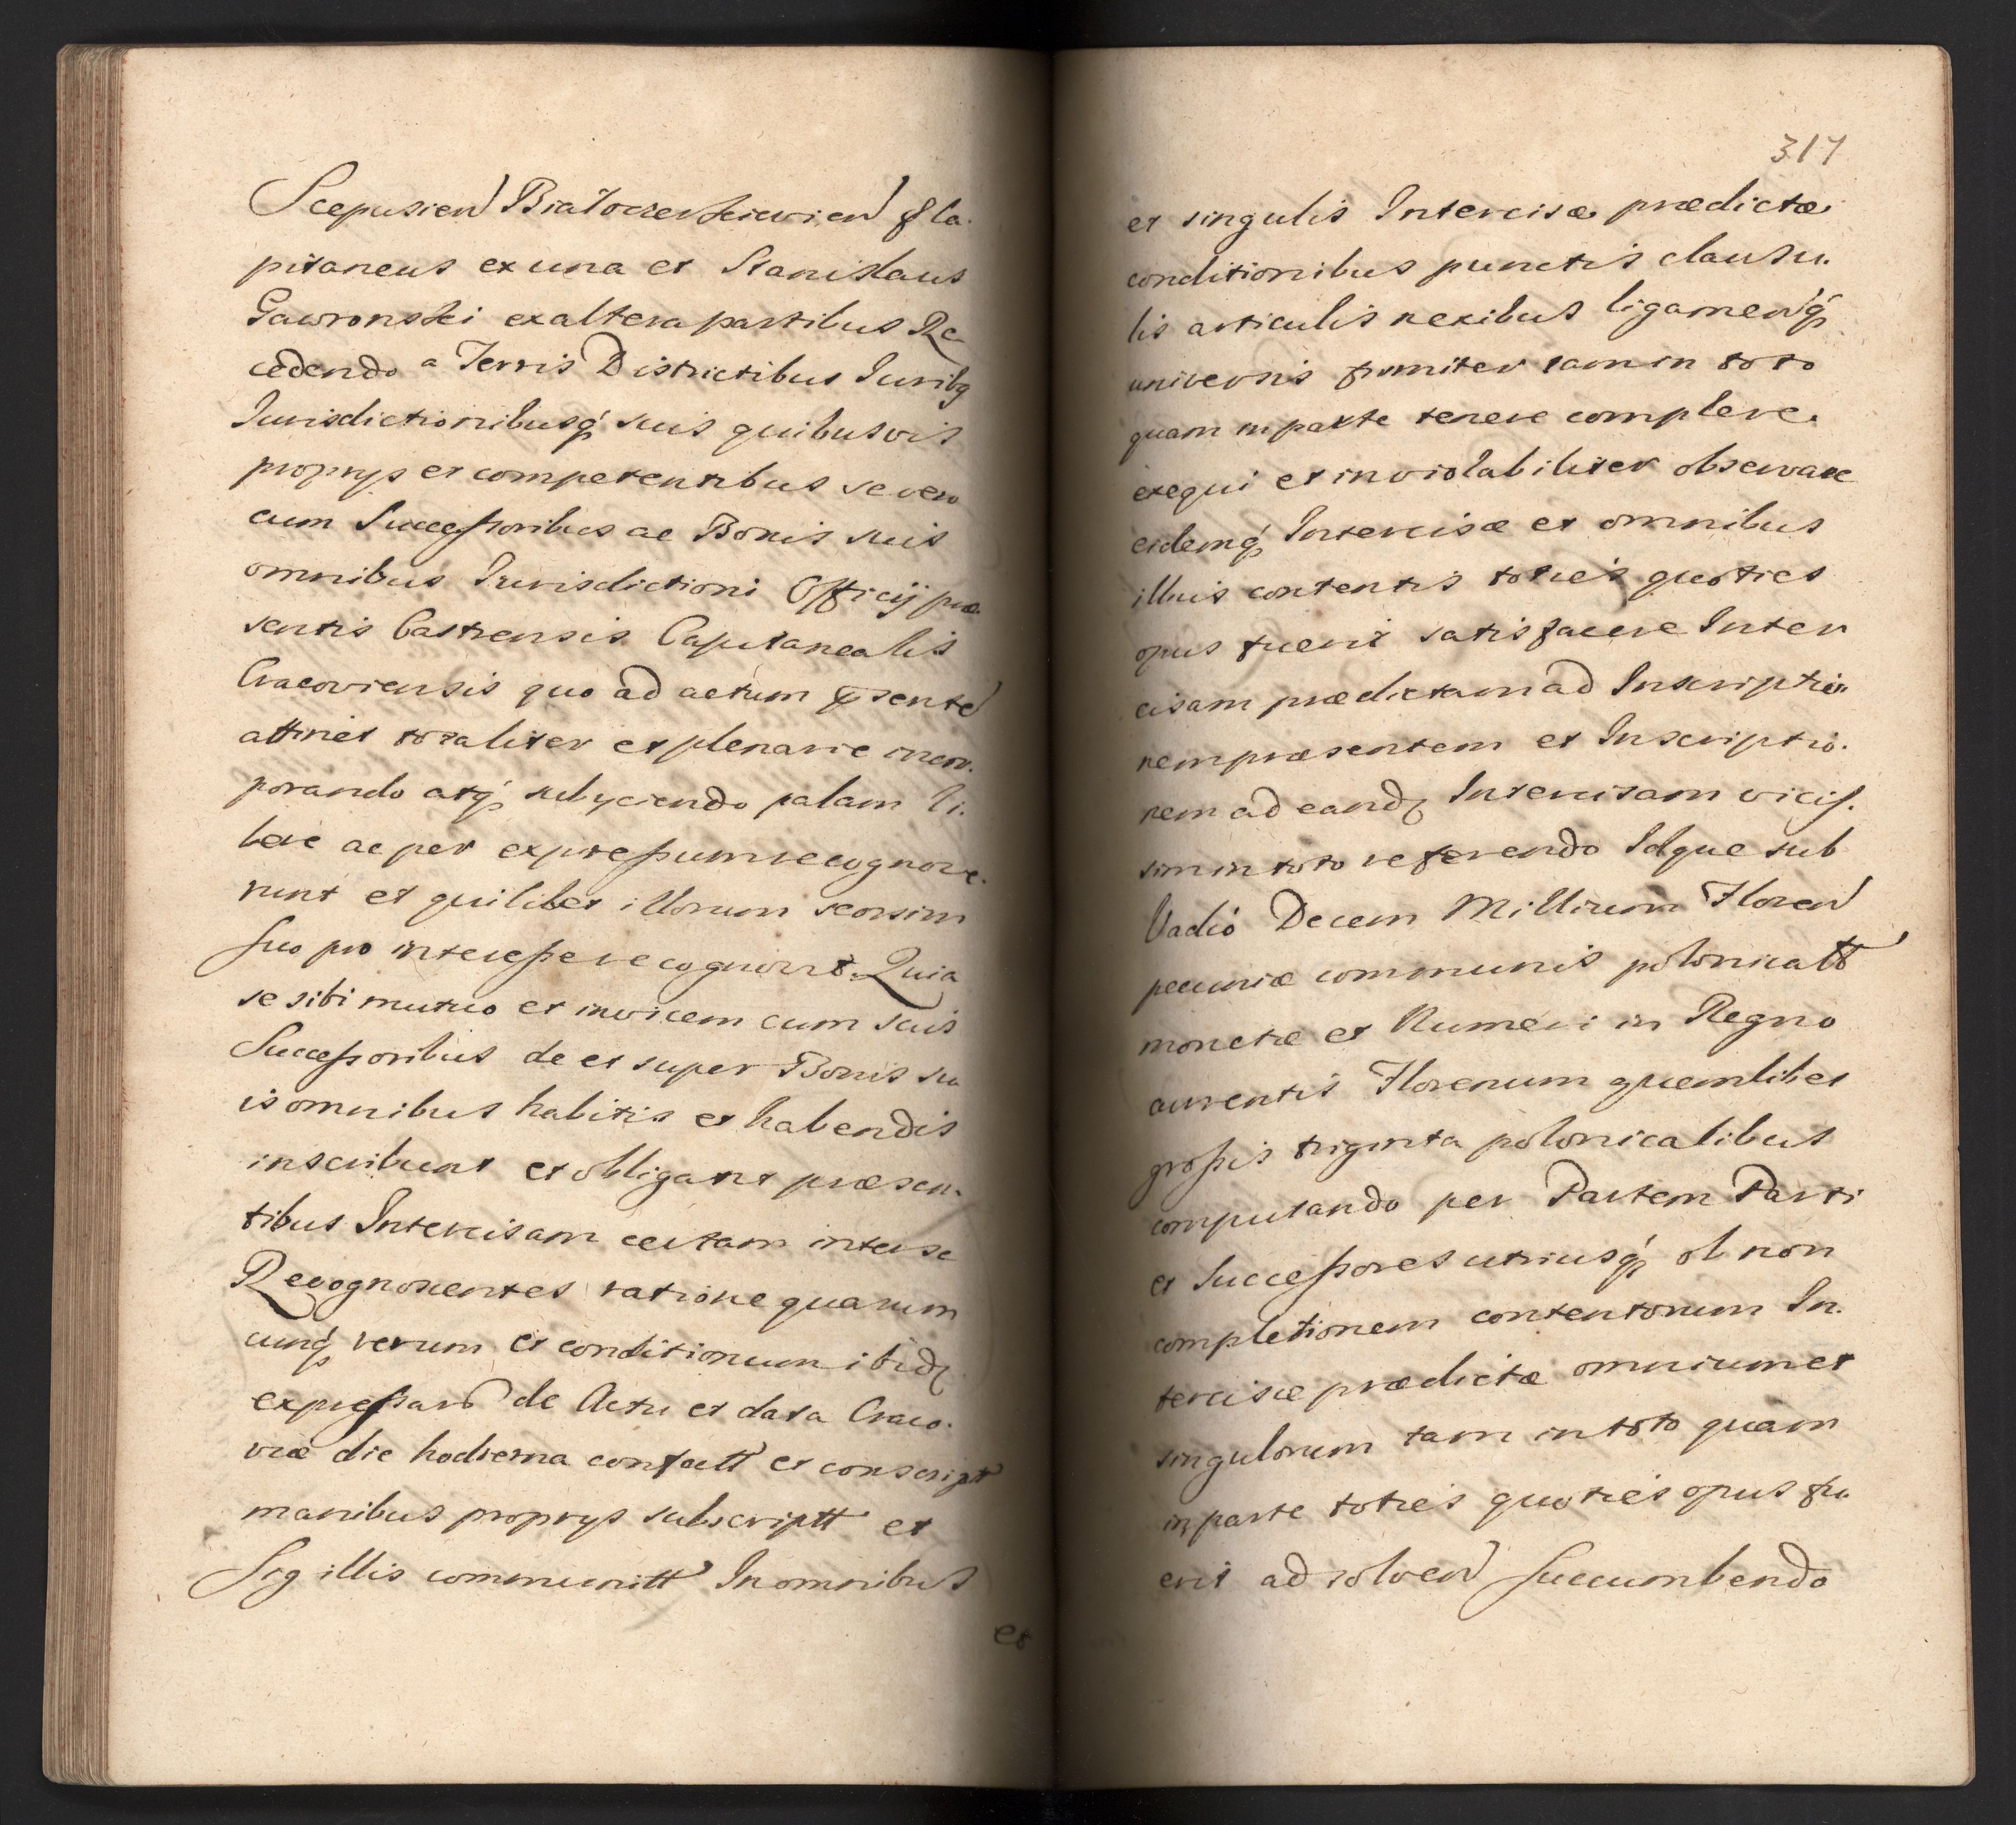 Scepusien Białocerkiewien & Ca.
pitaneus ex una et Stanislaus
Gawronski ex altera partibus Re
cedendo a Terris Districtibus Juribq
Jurisdictionibusq suis quibusvis
proprys et competentibus se vero
cum Successoribus ac Bonis suis
omnibus Jurisdictioni Officij præ
sentis Castrensis Capitanealis
Cracoviensis quo ad actum præsente
attinet totaliter et plenarie incor.
porando atq subyciendo palam li.
bere ac per expressum recognove.
runt et quilibet illorum seorsim
suo pro interesse recognovit. Quia
se sibi mutuo et invicem cum suis
Successoribus de et super Bonis su
is omnibus habitis et habendis
inscribunt et obligant præsen.
tibus Intercisam certam inter se
Recognoscentes ratione quarum
cunq rerum et conditionum ibidq
expressar de Actu et data Craco.
viæ die hodierna confectt et conscript
manibus proprys subscriptt et
Sigillis communitt In omnibus
et
317
et singulis Intercisæ prædictæ
conditionibus punctis clausu.
lis articulis nexibus ligamenq
universis firmiter tam in toto
quam in parte tenere complere.
exequi et inviolabiliter observare
eidemq Intercisæ et omnibus
illius contentis toties quoties
opus fuerit satisfacere Inter
cisam prædictam ad Inscriptio
nem præsentem et Inscriptio.
nem ad eandq Intercisam vicis.
sim in toto referendo Idque sub
Vadio Decem Millium Floren
pecuniæ communis polonicatt
monetæ et Numeri in Regno
currentis Florenum quemlibet
grossis triginta polonicalibus
computando per Partem Parti
et Successores utriusq ob non
completionem contentorum In.
tercisæ prædictæ omnium et
singulorum tam in toto quam
in parte toties quoties opus fu
erit ad solven succumbendo